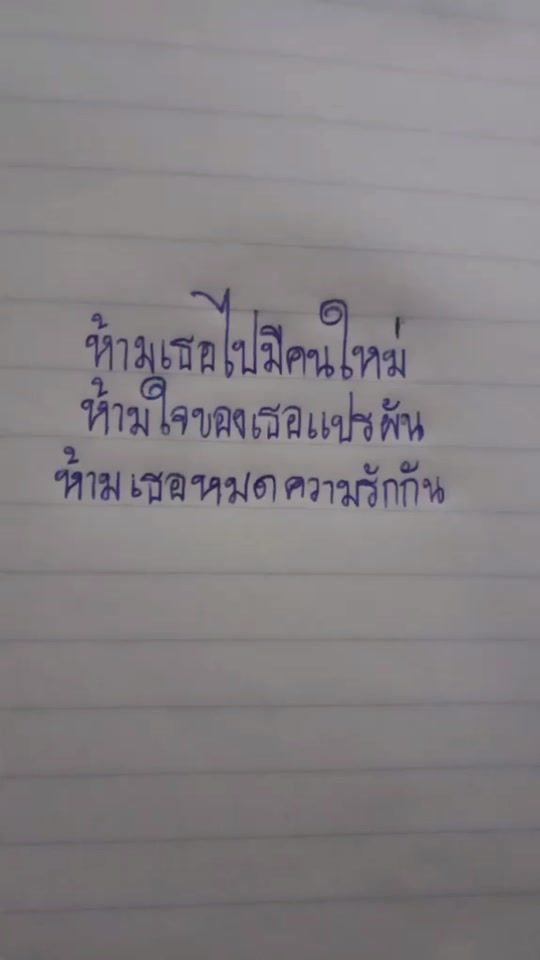 ห้ามเธอไปมีคนใหม่
ห้ามใจของเธอแปรผัน
ห้ามเธอหมดความรักกัน